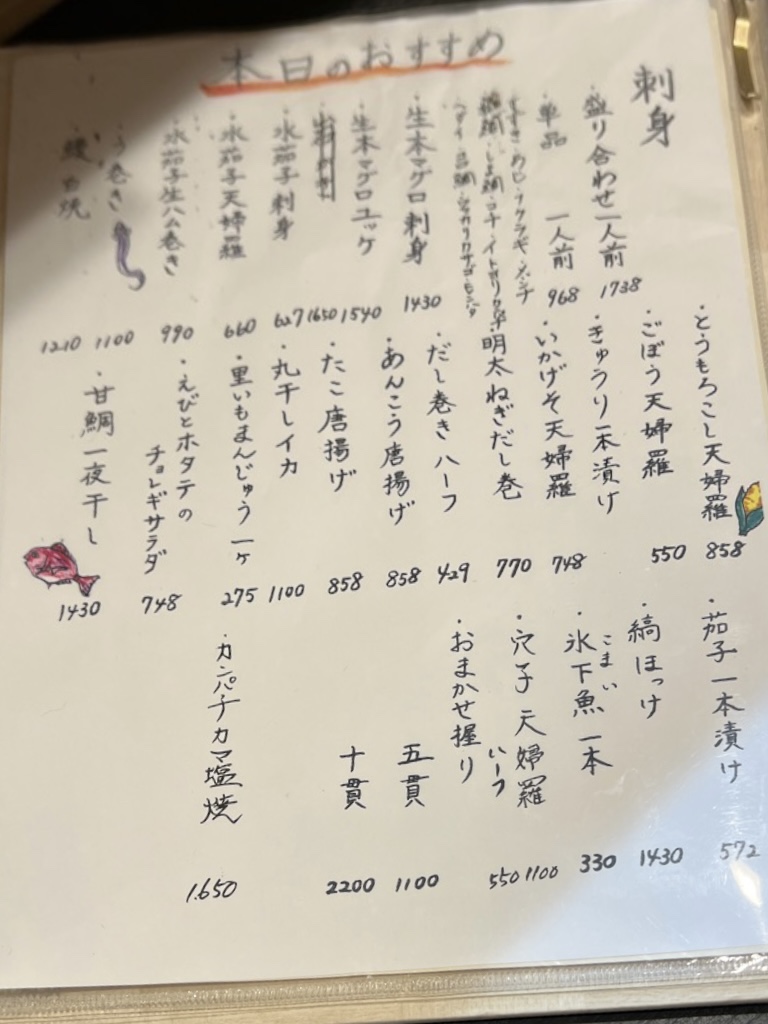 本日のおすすめ
刺身
盛り合わせ一人前 1738
単品 一人前 968
生本マグロ刺身 1430
生本マグロユッケ 1540
1650
水茄子刺身 627
水茄子天婦羅 660
水茄子生ハム巻き 990
う巻き 1100
鰻白焼 1210
・とうもろこし天婦羅 858
・ごぼう天婦羅 550
・きゅうり一本漬け
・いかげそ天婦羅 748
・明太ねぎだし巻 770
・だし巻きハーフ 429
・あんこう唐揚げ 858
・たこ唐揚げ 858
・丸干しイカ 1100
・里いもまんじゅう一ヶ 275
・えびとホタテの
チョレギサラダ 748
・甘鯛一夜干し 1430
・茄子一本漬け 572
・縞ほっけ 1430
こまい
・氷下魚一本 330
・穴子天婦羅 1100
550
・おまかせ握り
五貫 1100
十貫 2200
・カンパチカマ塩焼 1.650